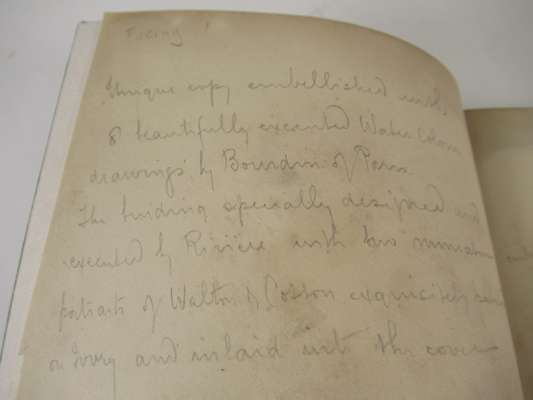 Facing
Unique copy embellished with
8 beautifully executed Water Colour
drawings by Bourdin of Paris
The binding specially designed and
executed by Rivière with two miniature
portraits of Walton & Cotton exquisitely
on Ivory and inlaid into the cover